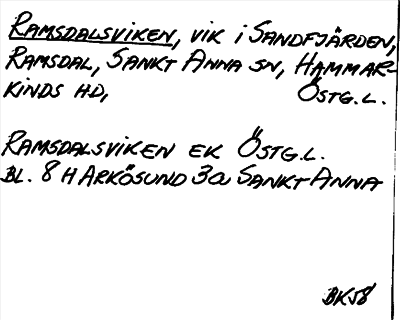 RAMSDALSVIKEN, VIK I SANDFJÄRDEN,
RAMSDAL, SANKT ANNA SN, HAMMAR-
KINDS HD, ÖSTG.L.
RAMSDALSVIKEN EK ÖSTG.L.
BL. 8 H ARKÖSUND 3a SANKT ANNA
BK58